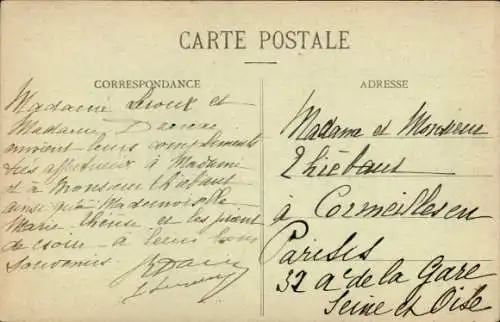 CARTE POSTALE
CORRESPONDANCE
ADRESSE
Madame Leroux et
Madame
envoient leurs compliments
très affectueux à Madame
et à Monsieur Thiébaut
ainsi qu'à Mademoiselle
Marie Thérèse et les prient
de croire à leurs bons
souvenirs
Madame et Monsieur
Thiébaut
à Cormeilles en
Parisis
32 av de la Gare
Seine et Oise